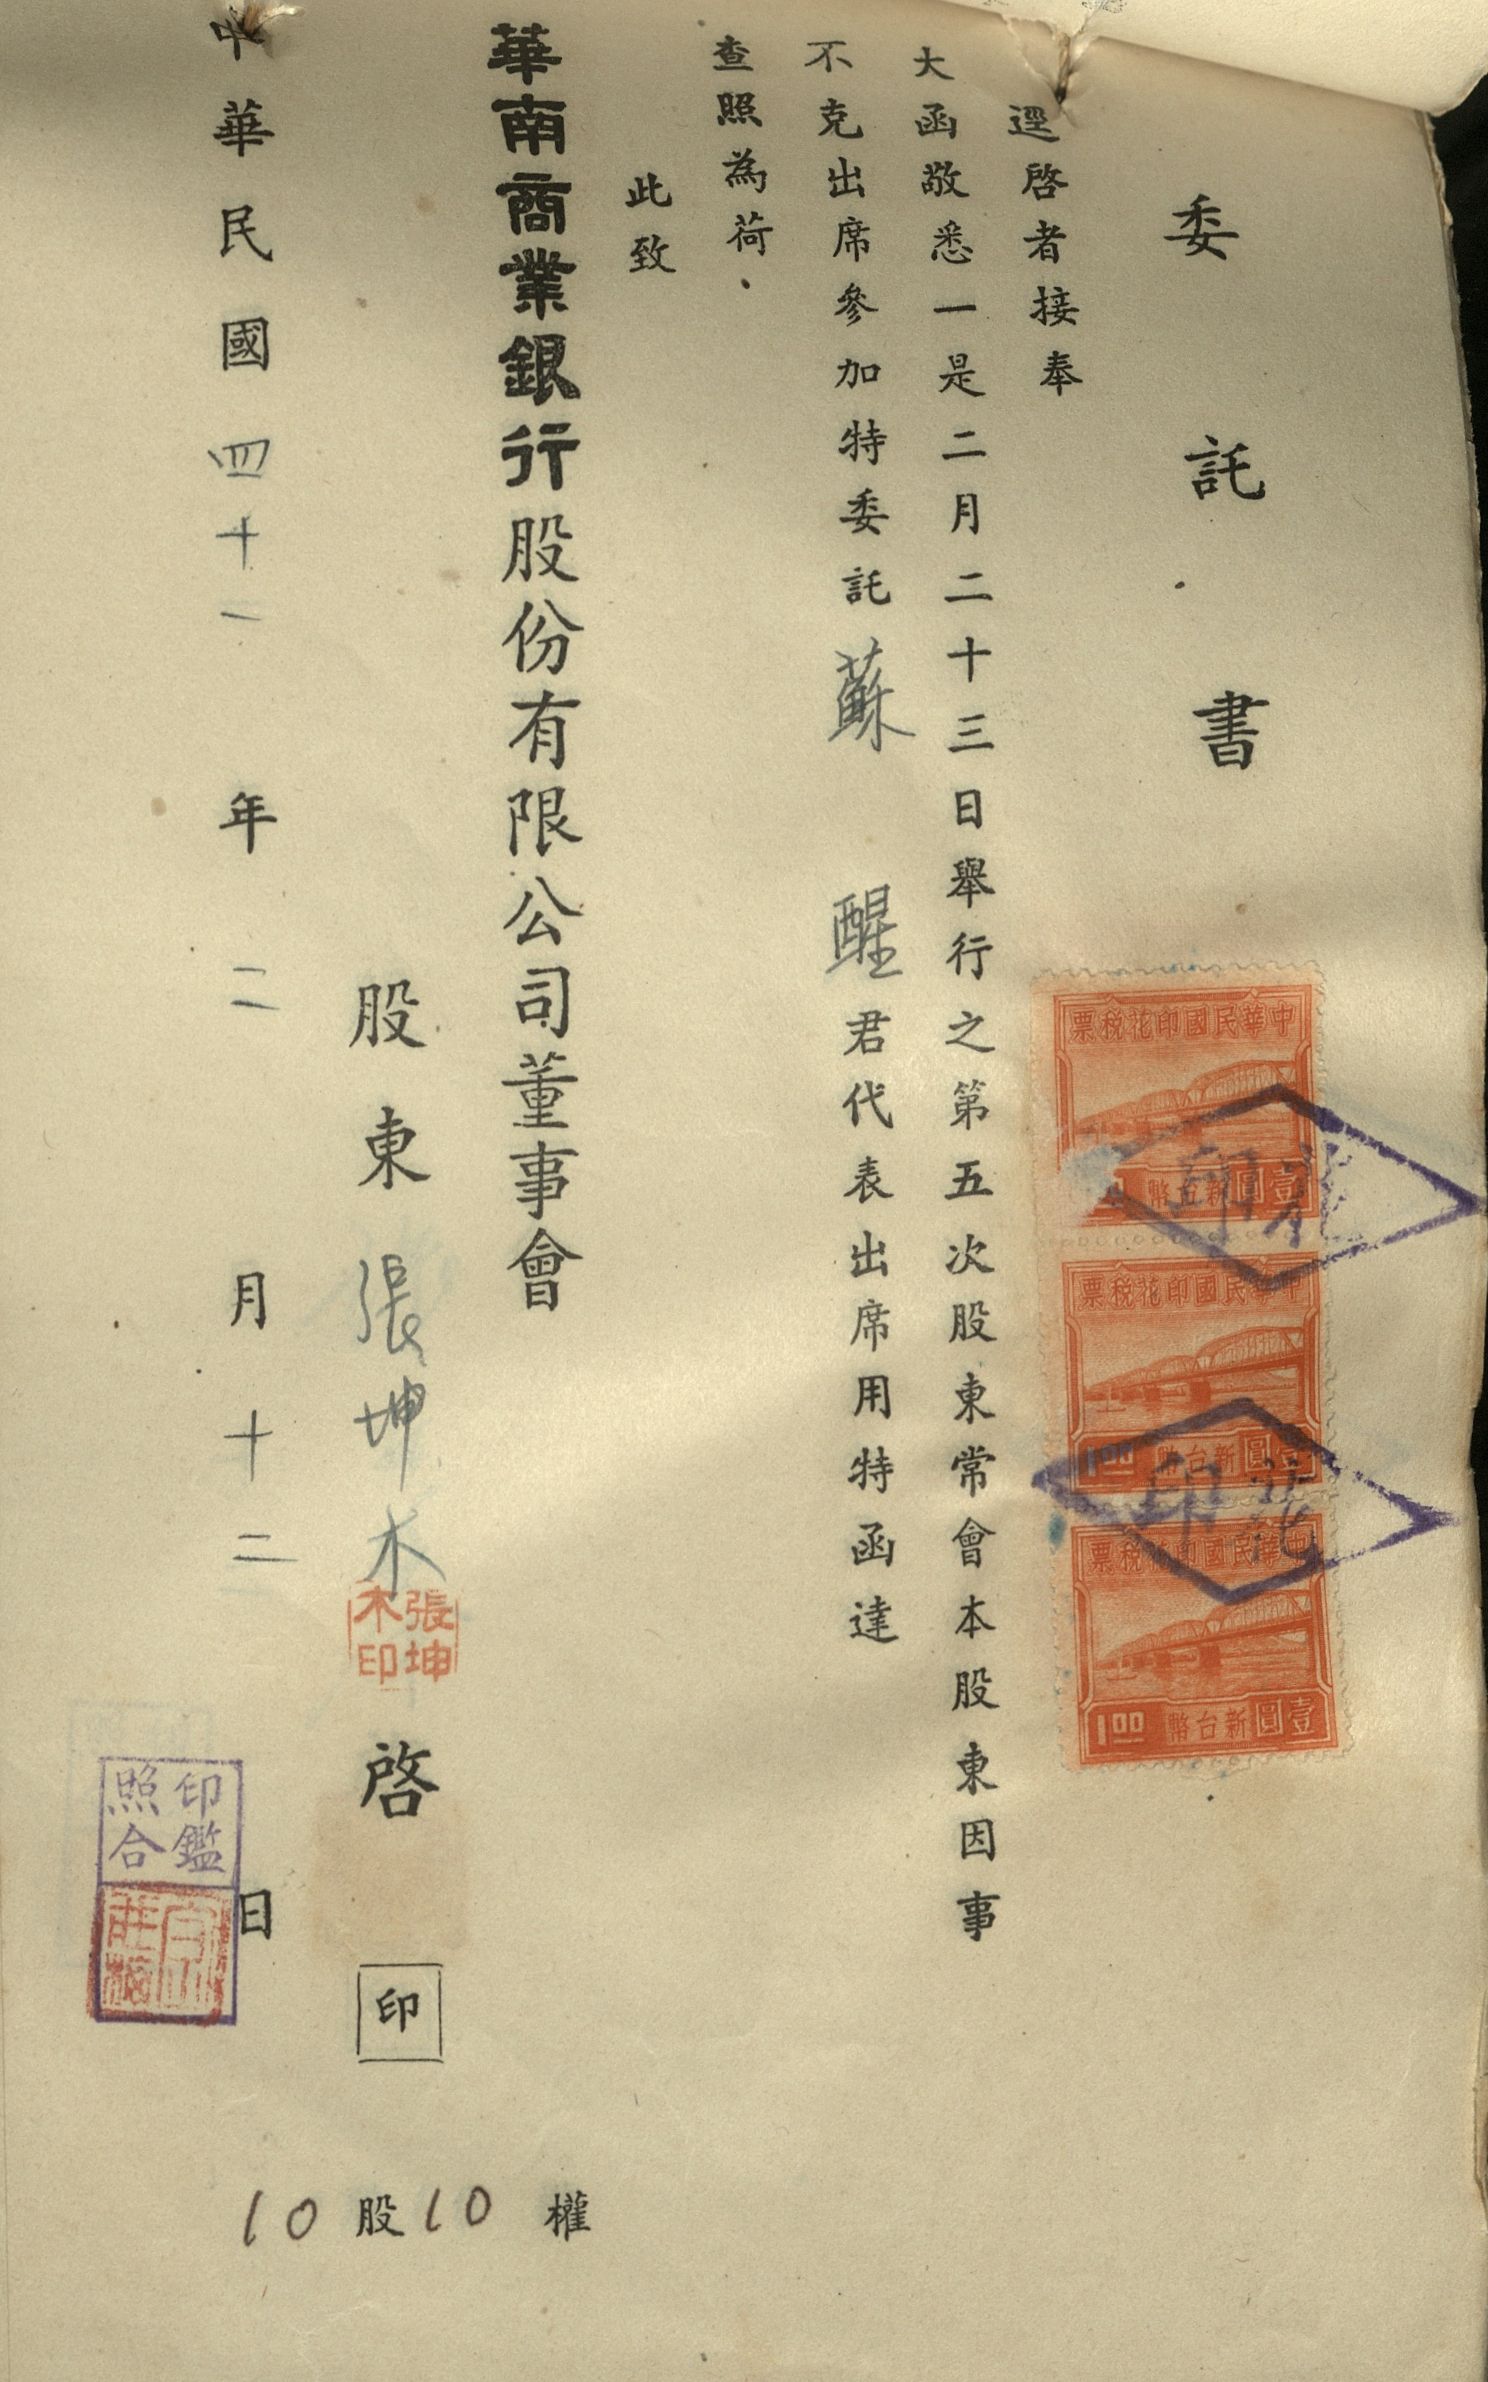 委託書
逕啓者接奉
大函敬悉一是二月二十三日舉行之第五次股東常會本股東因事
不克出席參加特委託蘇醒君代表出席用特函達
查照為荷．
此致
華南商業銀行股份有限公司董事會
股東張坤木啓印
張坤
木印
中華民國四十一年二月十二日
印鑑
照合
10股10權
中華民國印花稅票
壹圓新台幣
中華民國印花稅票
壹圓新台幣1.00
中華民國印花稅票
壹圓新台幣1.00